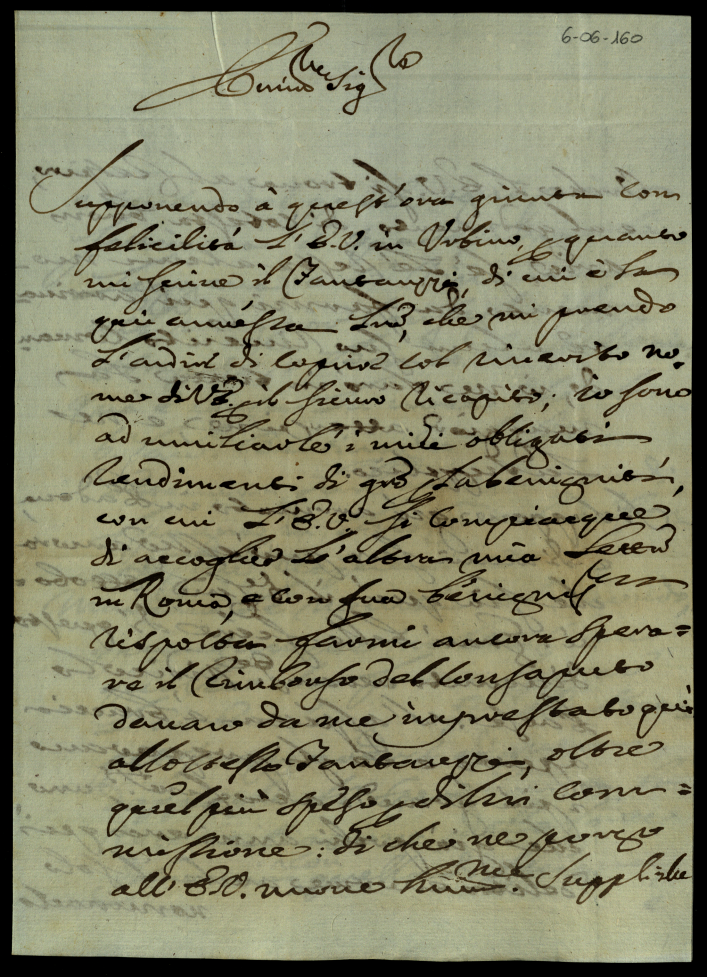 6-06-160
Sig.
Supponendo à quest'ora giunta con
felicilità L'E.V. in Urbino, quanto
mi scrive il Fantauzzi, di cui è la
qui annessa che mi prendo
L'ardire di copiar col riverito no=
me di V.E. il sicuro ricapito; io sono
ad umiliarle i miei obligati
rendimenti di la benignità,
con cui L'E.V. si compiacque
di accogliere L'altra mia
in Roma, e con sua benigniss.
risposta farmi ancora spera=
re il rimborso del consaputo
danaro da me imprestato qui
allo stesso Fantauzzi, oltre
quel più speso di lui com=
missione: di che ne porgo
all'E.V. nuove Suppliche